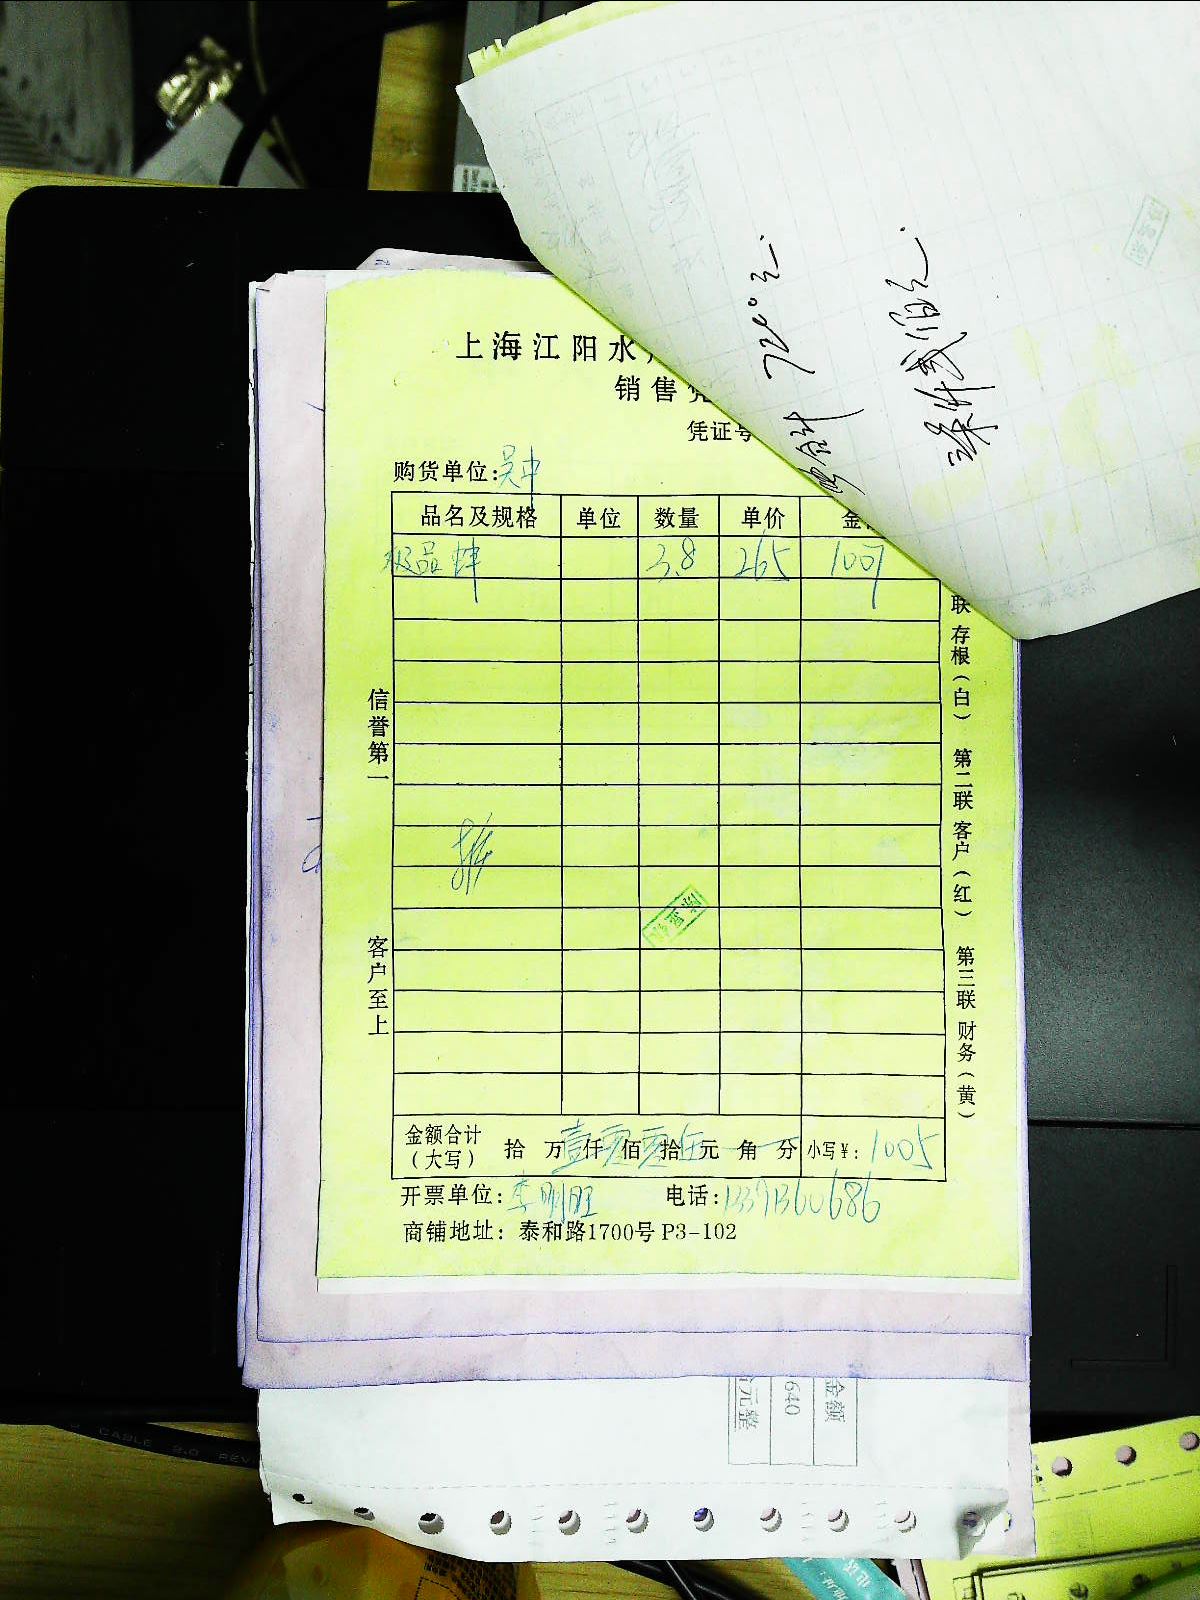 上海江阳水
销售凭
凭证号
购货单位:吴中
品名及规格 单位 数量 单价 金额
极品 3.8 265 1007
联 存根(白) 第二联 客户(红) 第三联 财务(黄)
信誉第一
客户至上
金额合计(大写) 拾 万 壹 仟 零 佰 零 拾 伍 元 角 分 小写¥: 1005
开票单位:李明旺 电话:
商铺地址: 泰和路1700号P3-102
合计 7200元.
柒仟贰佰元.
金额
640
元整
CABLE 2.0 REV